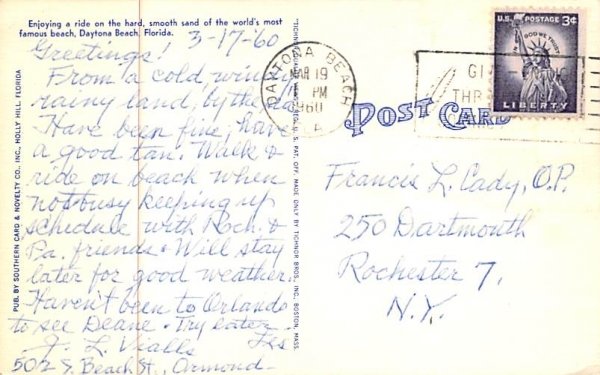 Enjoying a ride on the hard, smooth sand of the world's most
famous beach, Daytona Beach, Florida.
Greetings! 3-17-'60
From a cold, windy
rainy land, by the sea
Have been fine, have
a good tan. Walk &
ride on beach when
not busy keeping up
schedule with Roch. &
Pa. friends. Will stay
later for good weather.
Haven't been to Orlando
to see Deane. Try later.
F. L. Vialls
502 S. Beach St., Ormond
PUB. BY SOUTHERN CARD & NOVELTY CO., INC., HOLLY HILL, FLORIDA
REG. U. S. PAT. OFF. MADE ONLY BY TICHNOR BROS., INC., BOSTON, MASS.
DAYTONA BEACH
MAR 19
PM
1960
POST CARD
U.S. POSTAGE 3¢
IN GOD WE TRUST
LIBERTY
Francis L. Cady, O.P.
250 Dartmouth
Rochester 7,
N.Y.